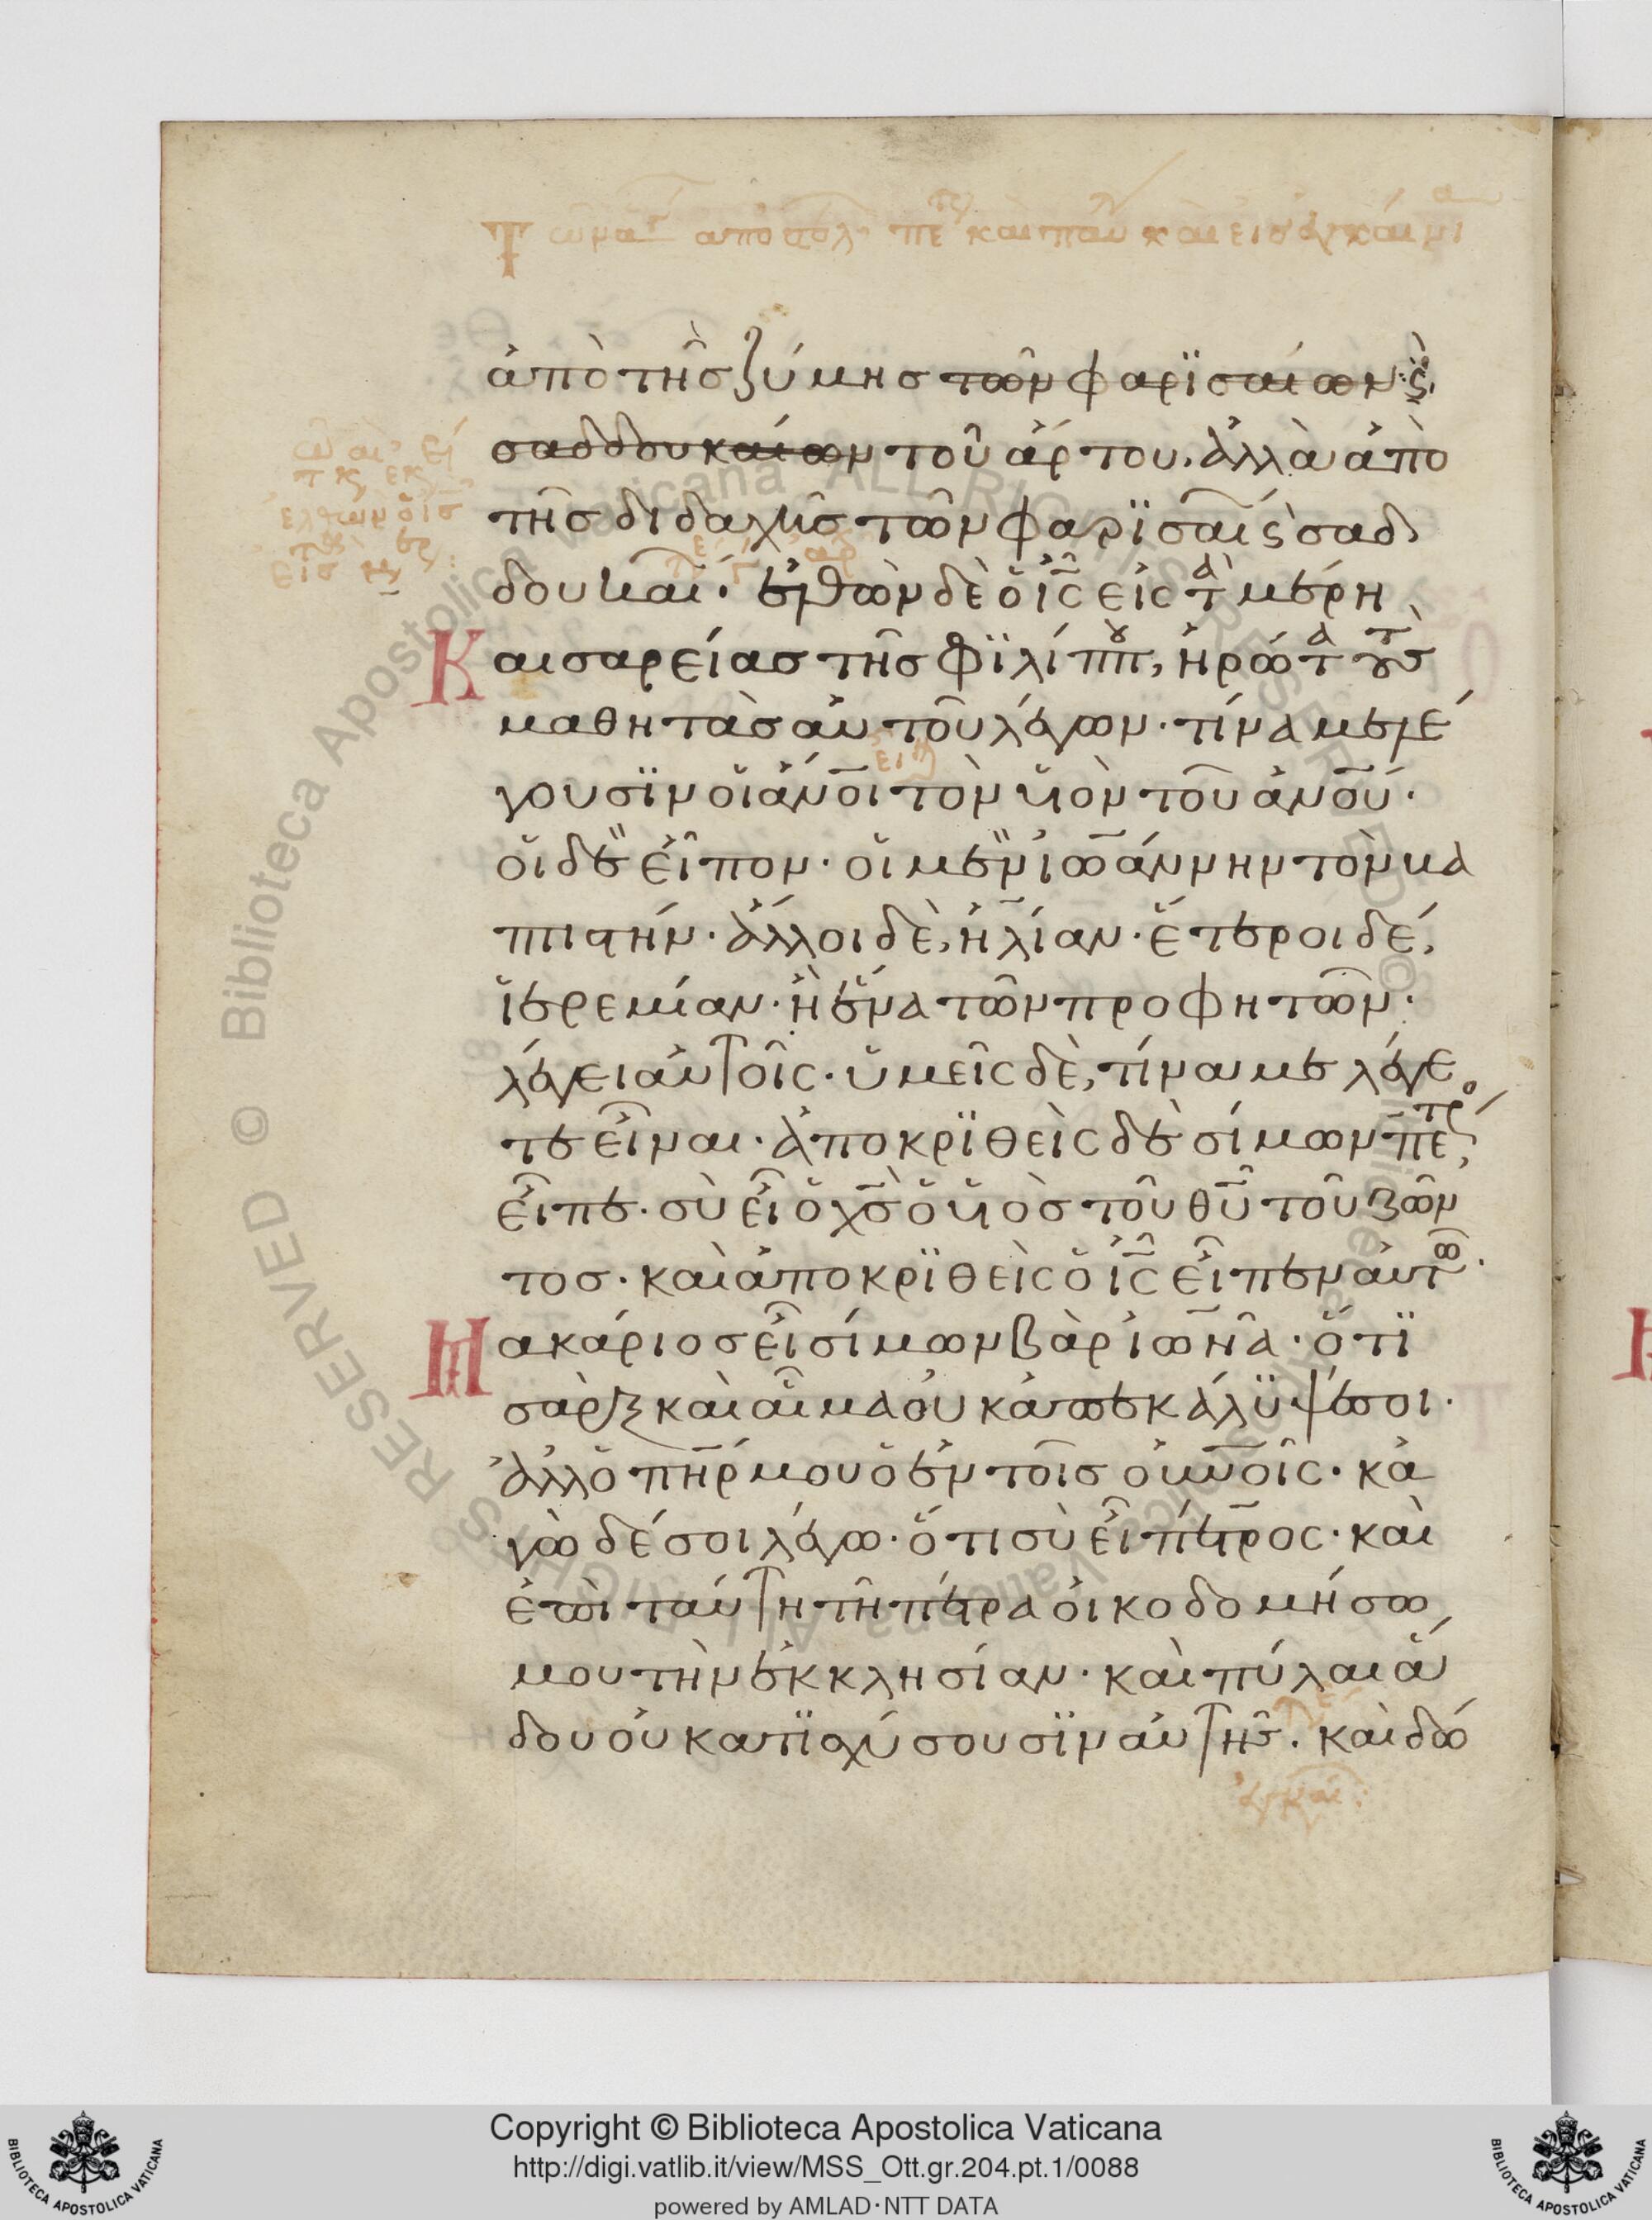 Τῶν ἁγ ἀποστόλ πε καὶ παυ καὶ εἰς
ἀπὸ τῆς ζύμης τῶν φαρϊσαίων ϗ
σαδδουκαίων τοῦ ἄρτου, ἀλλὰ ἀπὸ
τῆς διδαχῆς τῶν φαρϊσαι ϗ σαδ
δουκαι· ἐλθὼν δὲ ὁ ἰς εἰς τὰ μέρη
Καισαρείας τῆς Φϊλίππου, ἠρώτα τοὺς
μαθητὰς αὐτοῦ λέγων· τίνα με λέ
γουσϊν οἱ ἄνοι τὸν υἱὸν τοῦ ἀνου·
οἱ δὲ εἶπον· οἱ μὲν ἰωάννην τὸν βα
πτιστήν· ἄλλοι δὲ, ἠλίαν· ἕτεροι δέ,
ἱερεμίαν· ἢ ἕνα τῶν προφητῶν·
λέγει αὐτοῖς· ὑμεῖς δὲ, τίνα με λέγε
τε εἶναι· ἀποκρϊθεὶς δὲ σίμων πέτρος
εἶπε· σὺ εἶ ὁ χς ὁ υἱὸς τοῦ θυ τοῦ ζῶν
τος· καὶ ἀποκρϊθεὶς ὁ ἰς εἶπεν αὐτῶ·
Μακάριος εἶ σίμων βὰρ ἰωνᾶ· ὅτϊ
σὰρξ καὶ αἷμα οὐκ ἀπεκάλϋψέ σοι·
ἀλλ' ὁ πηρ μου ὁ ἐν τοῖς οὐνοις· κἀ
γὼ δέ σοι λέγω· ὅτι σὺ εἶ πέτρος· καὶ
ἐπὶ ταύτη τῆ πέτρα οἰκοδομήσω
μου τὴν ἐκκλησίαν· καὶ πύλαι ἅ
δου οὐ κατϊσχύσουσϊν αὐτῆς. καὶ δώ
Copyright © Biblioteca Apostolica Vaticana
http://digi.vatlib.it/view/MSS_Ott.gr.204.pt.1/0088
powered by AMLAD·NTT DATA
BIBLIOTECA APOSTOLICA VATICANA
BIBLIOTECA APOSTOLICA VATICANA